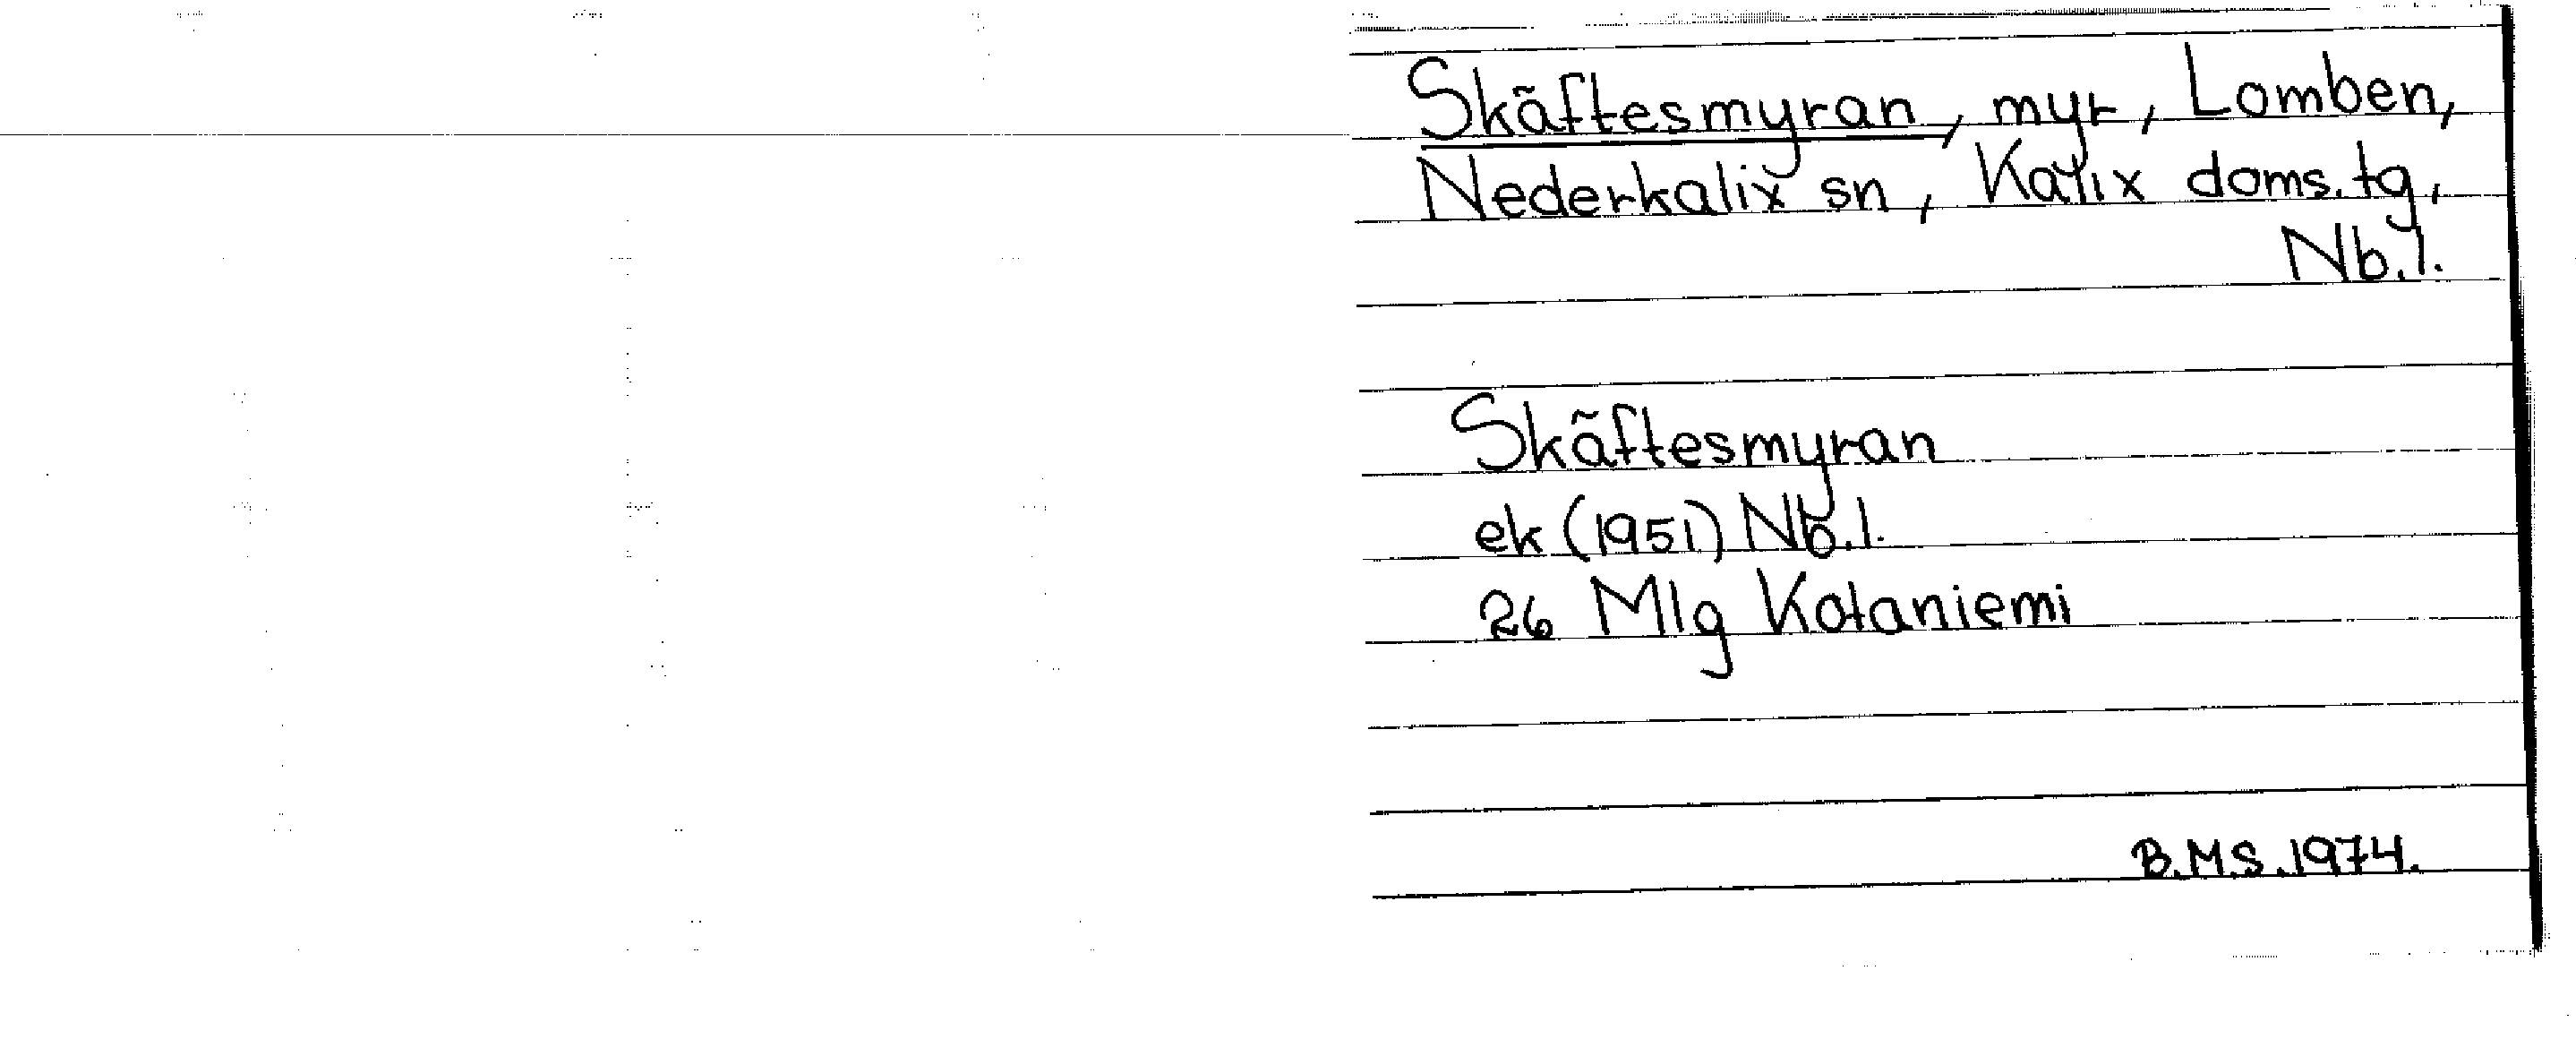 Skäftesmyran, myr, Lomben,
Nederkalix sn, Kalix doms.tg,
Nb.l.
Skäftesmyran
ek (1951) Nb.l.
26 Mlg Kotaniemi
B.M.S.1974.